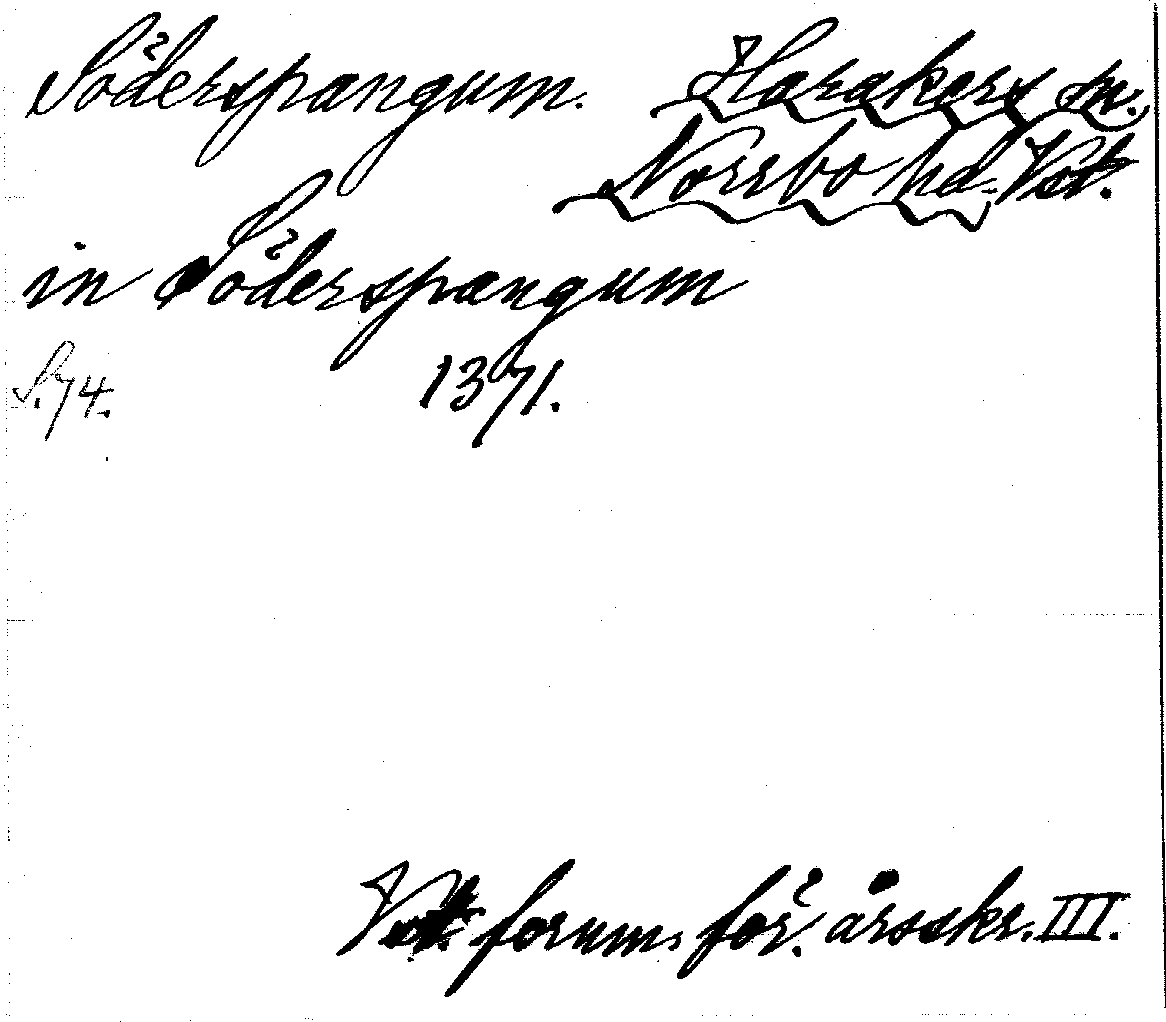 Söderspangum. Harakers sn.
Norrbo hd. Vst.
in Söderspangum
S. 74. 1371.
Vst. fornm. för. årsskr. III.